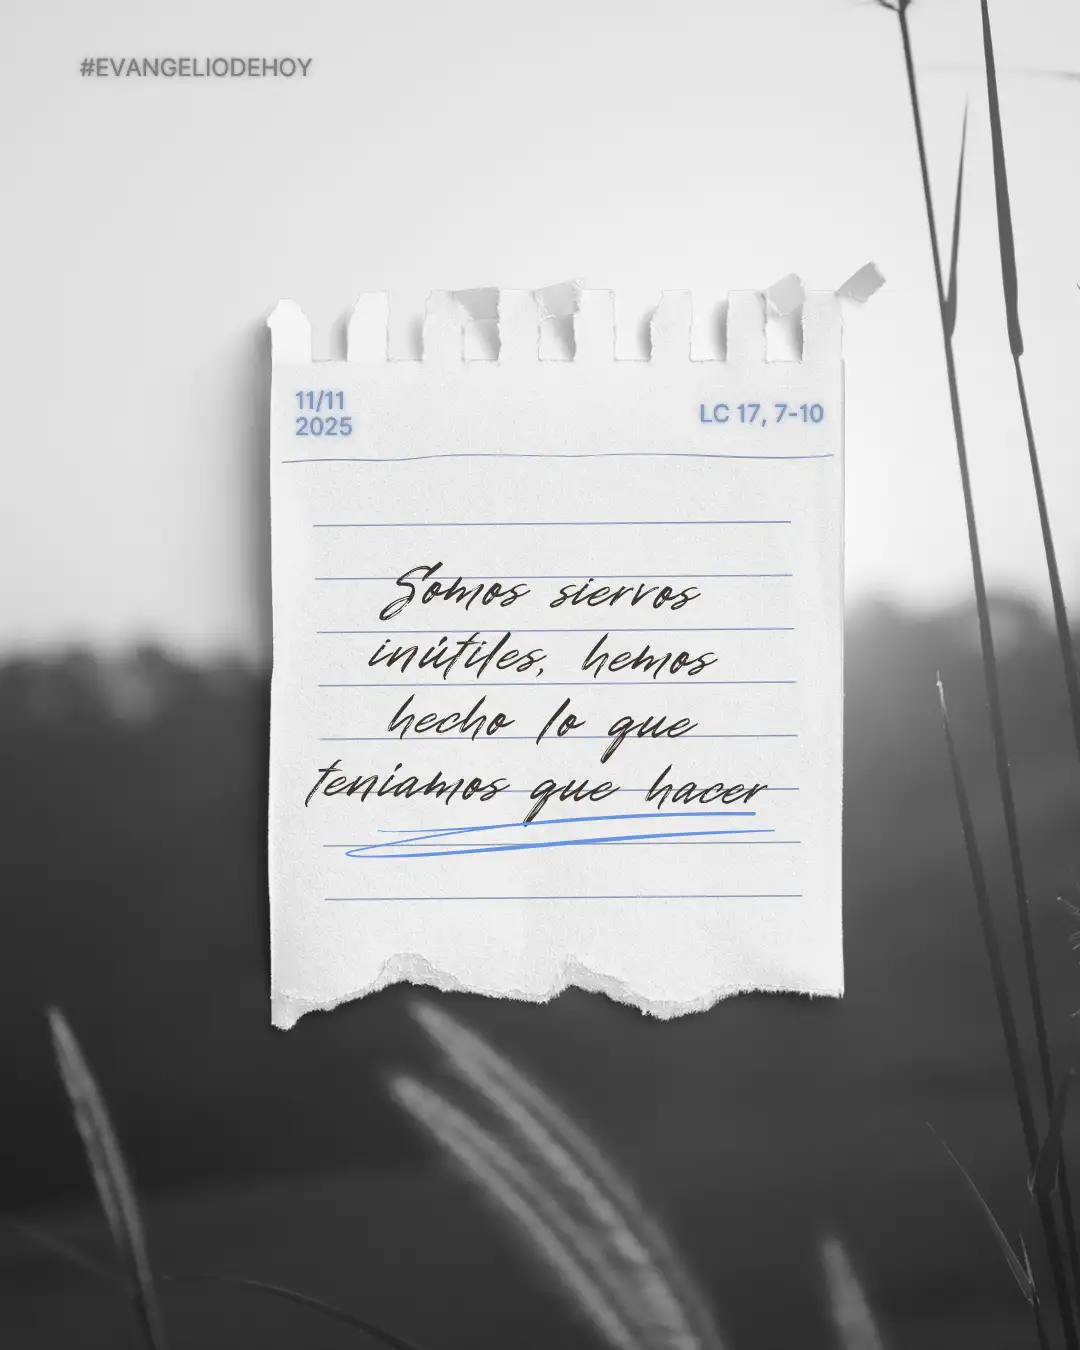 #EVANGELIODEHOY
11/11
2025
LC 17, 7-10
Somos siervos
inútiles, hemos
hecho lo que
teníamos que hacer